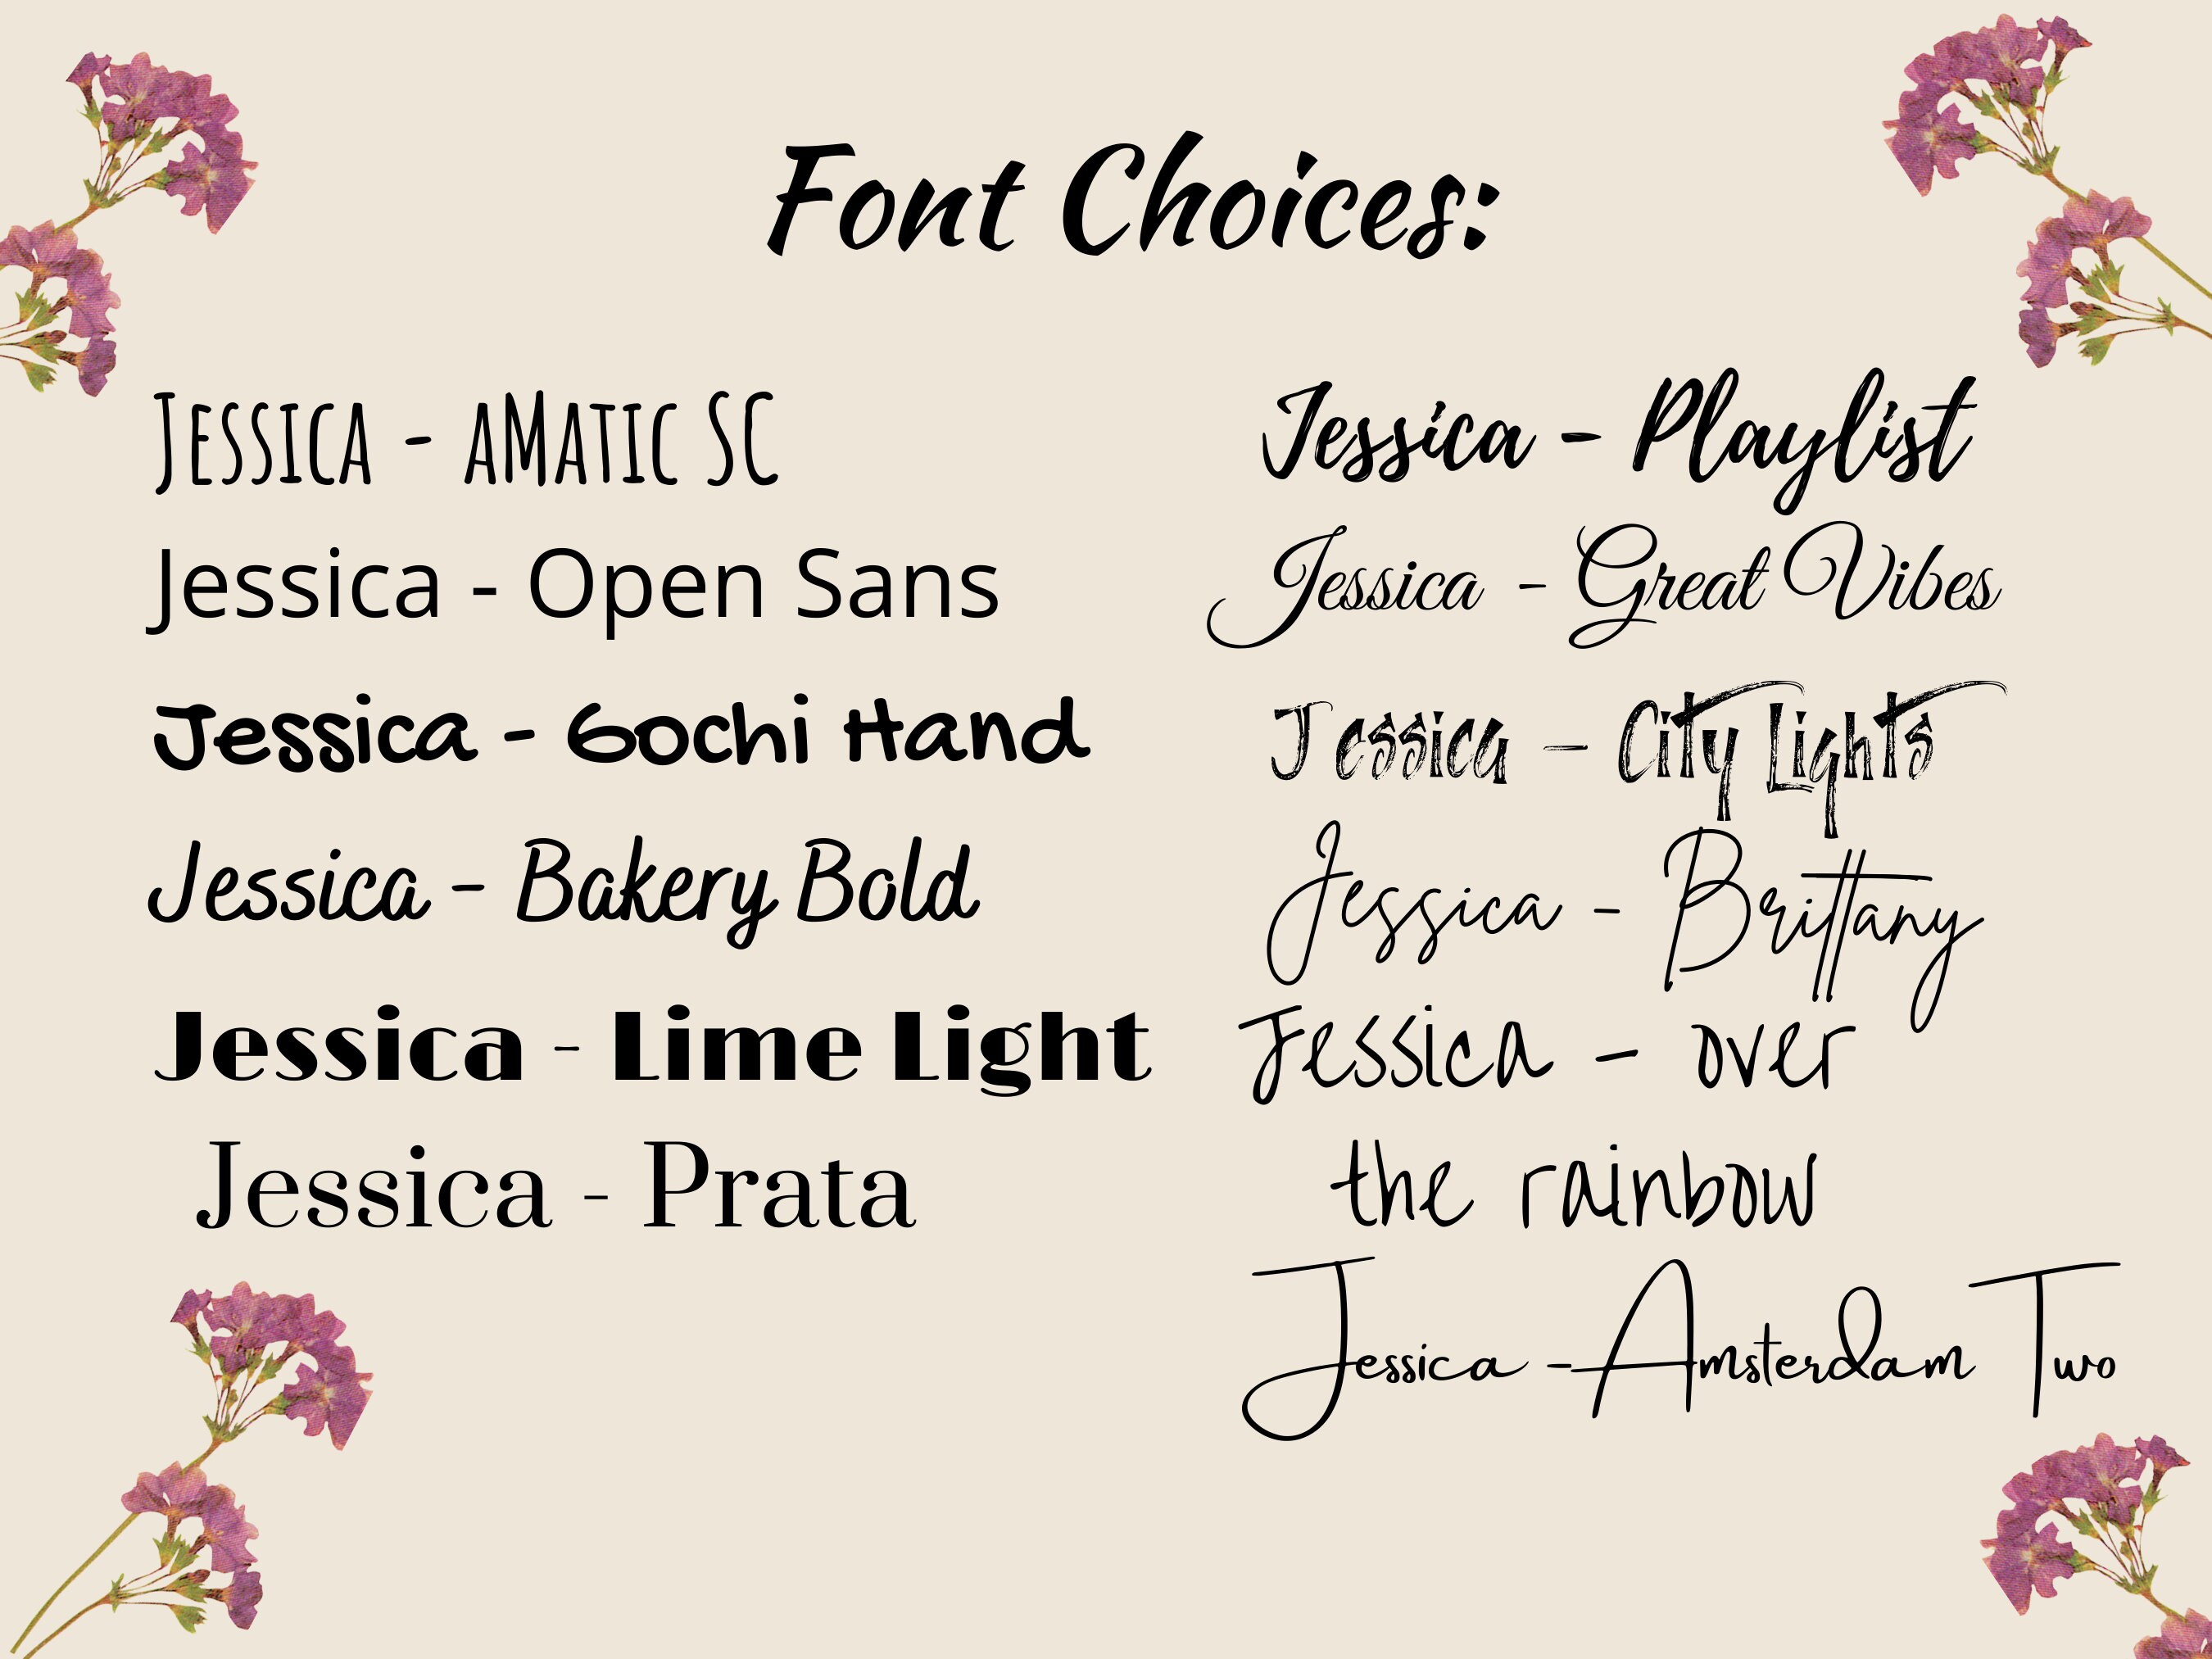 Font Choices:
Jessica - aMatic SC
Jessica - Open Sans
Jessica - Gochi Hand
Jessica - Bakery Bold
Jessica - Lime Light
Jessica - Prata
Jessica - Playlist
Jessica - Great Vibes
Jessica - City Lights
Jessica - Brittany
Jessica - over
the rainbow
Jessica - Amsterdam Two